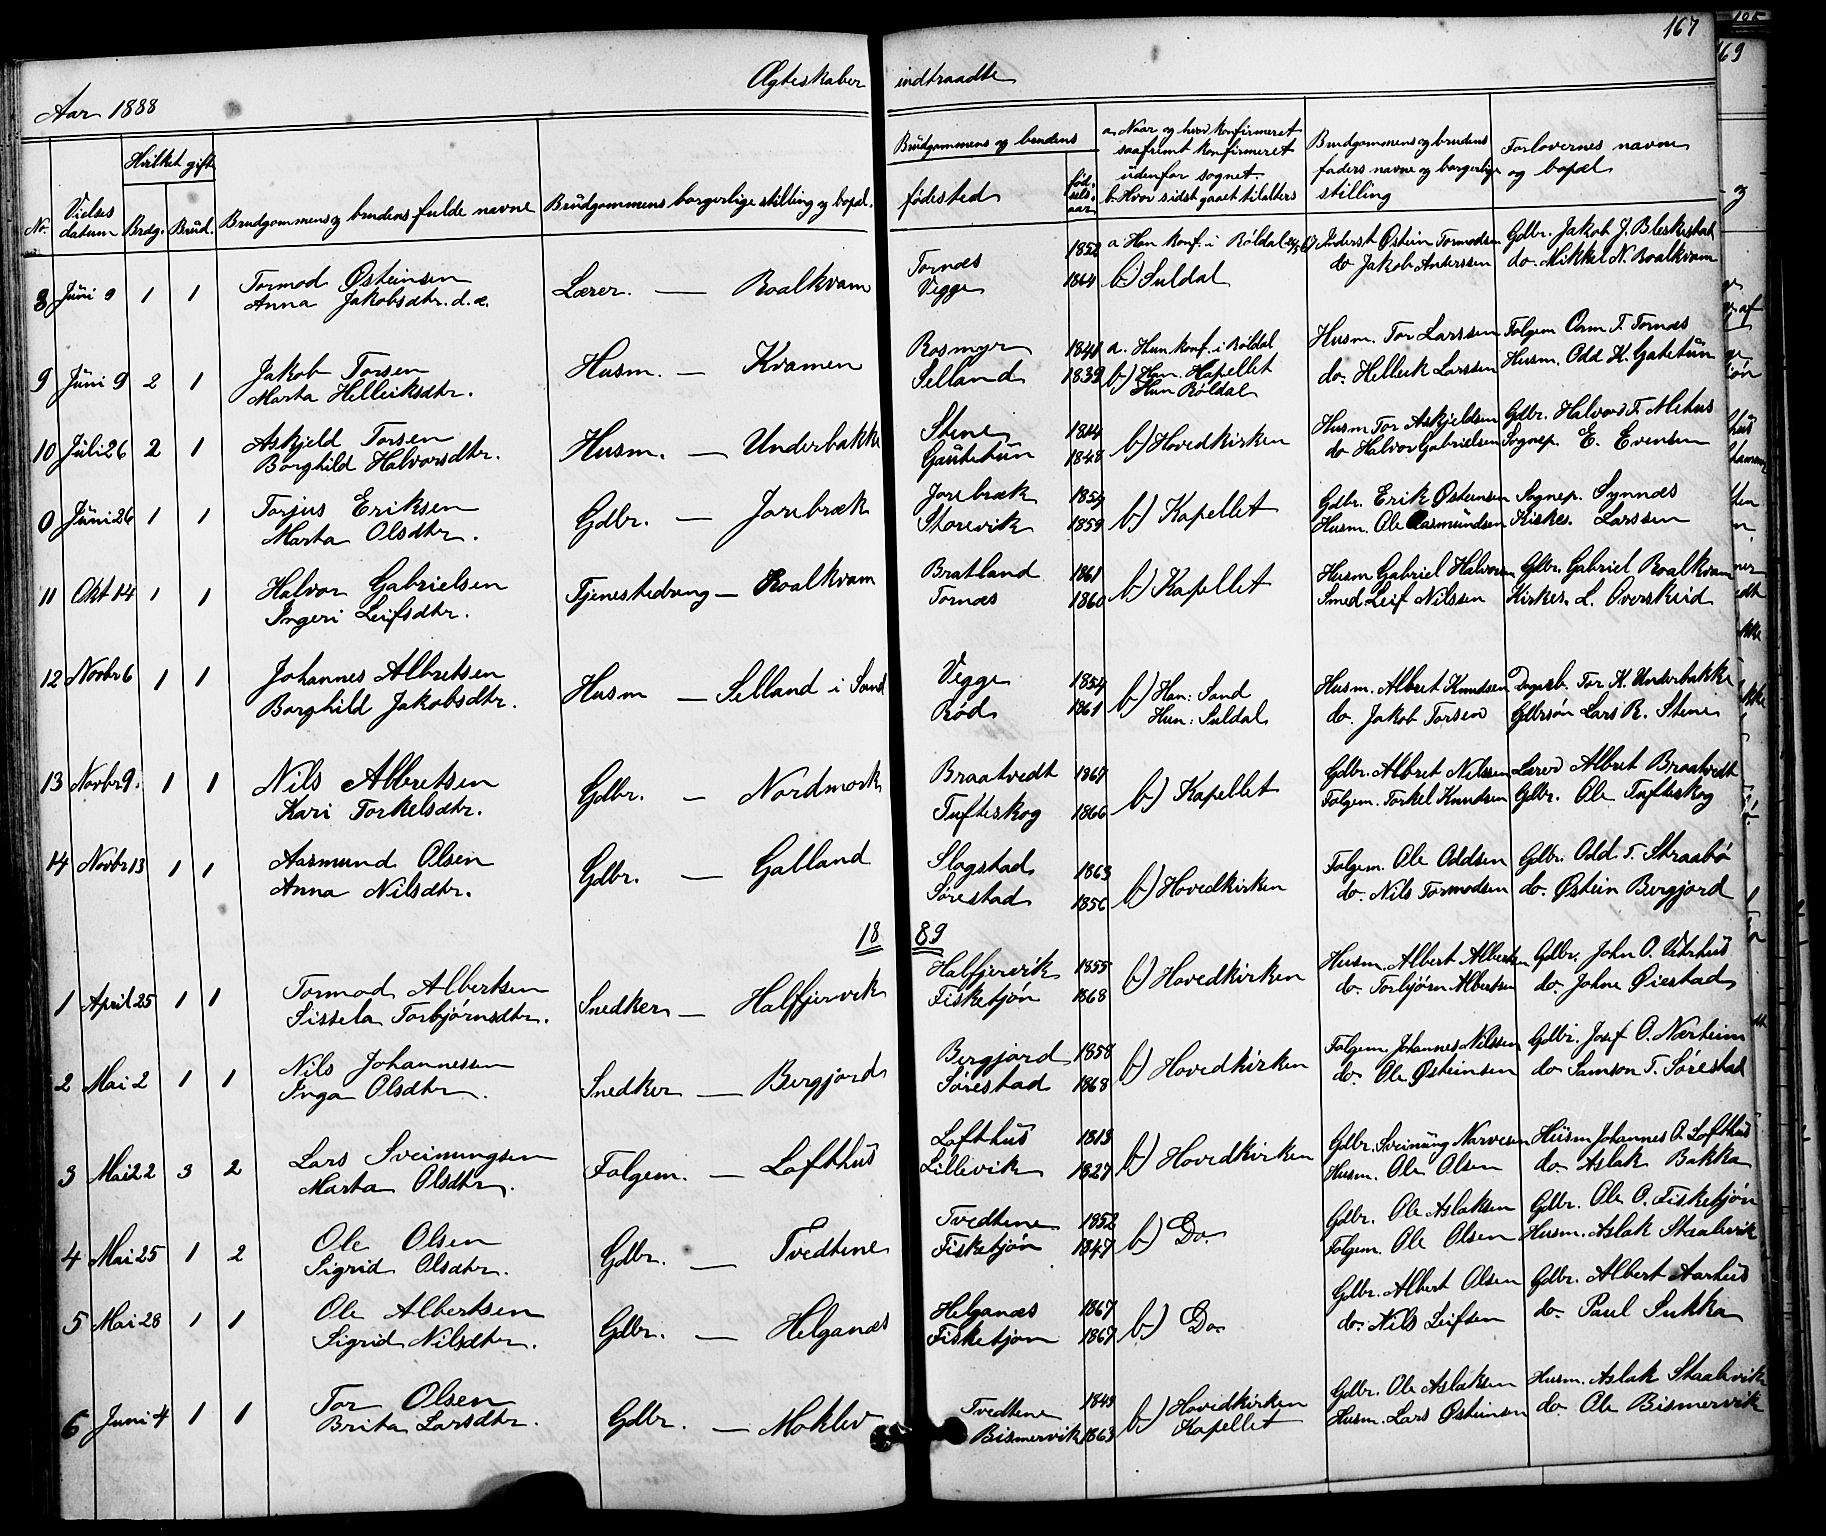 167
Ægteskaber indtraadte
Aar 1888
No. Vielses datum Hvilket gifte Brdg. Brud. Brudgommens og brudens fulde navne Brudgommens borgerlige stilling og bopæl. Brudgommens og brudens fødested fødselsaar a. Naar og hvor konfirmeret saafremt konfirmeret udenfor sognet. b. Hvor sidst gaaet til alters Brudgommens og brudens faders navne og borgerlige stilling Forlovernes navne og bopæl
8 Juni 9 1 1 Tormod Østeinsen Lærer. — Roalkvam Tornæs 1852 a Han konf. i Røldal Inderst Østein Tormodsen Gdbr. Jakob J. Bleskestad
Anna Jakobsdtr. d. æ. Vegge 1864 b) Suldal do Jakob Anderssen do. Mikkel N. Roalkvam
9 Juni 9 2 1 Jakob Torsen Husm. — Kvamen Rosmyr 1841 a. Hun konf. i Røldal Husm. Tor Larssen Folgem Orm T. Tornæs
Marta Helleiksdtr. Selland 1839 b) Han. Kapellet Hun Røldal do. Helleik Larssen Husm. Odd K. Gautetun
10 Juli 26 2 1 Askjeld Torsen Husm. — Underbakke Stene 1844 b) Hovedkirken Husm Tor Askjeldsen Gdbr. Halvor T. Mehus
Borghild Halvorsdtr. Gautetun 1848 do Halvor Gabrielsen Sognep. E. Evensen
0 Juni 26 1 1 Torjus Eriksen Gdbr. — Jorebræk Jorebræk 1854 b) Kapellet Gdbr. Erik Østensen Sognep. Synnæs
Marta Olsdtr. Storevik 1859 Husm. Ole Rasmundsen Kirkes. Larssen
11 Okt 14 1 1 Halvor Gabrielsen Tjenestedreng — Roalkvam Bratland 1861 b) Kapellet Husm Gabriel Halvorsen Gdbr. Gabriel Roalkvam
Ingeri Leifsdtr. Tornæs 1860 Smed Leif Nilssen Kirkes. L. Overskeid
12 Novbr 6 1 1 Johannes Albretsen Husm — Selland i Sand Vegge 1854 b) Han: Sand Husm. Albret Knudsen Dagarb. Tor K. Underbakke
Borghild Jakobsdtr. Rød 1861 Hun: Suldal do. Jakob Torsen Gdbrsøn Lars R. Stene
13 Novbr 9. 1 1 Nils Albretsen Gdbr. — Nordmork Braatvedt 1867 b) Kapellet Gdbr. Albret Nilssen Lærer Albret Braatvedt
Kari Torkelsdtr. Tufteskog 1866 Folgem. Torkel Knudsen Gdbr. Ole Tufteskog
14 Novbr 13 1 1 Aasmund Olsen Gdbr. — Galland Slagstad 1863 b) Hovedkirken Folgem. Ole Oddsen Gdbr. Odd T. Straabø
Anna Nilsdtr. Sørestad 1856 do. Nils Tormodsen do. Østein Bergjord
18 89
1 April 25 1 1 Tormod Albertsen Snedker — Halfjervik Halfjervik 1855 b) Hovedkirken Husm. Albert Albertsen Gdbr. John O. Vetrhus
Sissela Torbjørnsdtr. Fisketjøn 1868 do. Torbjørn Albertsen do. Johne Øiestad
2 Mai 2 1 1 Nils Johannessen Snedker — Bergjord Bergjord 1858 b) Hovedkirken Folgem. Johannes Nilssen Gdbr. Josef O. Nærheim
Inga Olsdtr. Sørestad 1868 do. Ole Østeinsen do Samson T. Sørestad
3 Mai 22 3 2 Lars Sveinungsen Folgem. — Lofthus Lofthus 1813 b) Hovedkirken Gdbr. Sveinung Narvesen Husm Johannes O. Lofthus
Marta Olsdtr. Lillevik 1827 Husm. Ole Olsen do. Aslak Bakka
4 Mai 25 1 2 Ole Olsen Gdbr. — Tvedtene Tvedtene 1852 b) Do. Gdbr. Ole Aslaksen Gdbr. Ole O. Fisketjøn
Sigrid Olsdtr. Fisketjøn 1847 Folgem. Ole Olsen Husm. Aslak Staalevik
5 Mai 28 1 1 Ole Albertsen Gdbr. — Helganæs Helganæs 1867 b) Do. Gdbr. Albert Olsen Gdbr. Albert Aarhus
Sigrid Nilsdtr. Fisketjøn 1867 do. Nils Leifsen do. Paul Sukka
6 Juni 4 1 1 Tor Olsen Gdbr. — Moklev Tvedtene 1849 b) Hovedkirken Gdbr. Ole Aslaksen Husm. Aslak Staalevik
Brita Larsdtr. Bismervik 1863 Kapellet Husm. Lars Østeinsen do. Ole Bismervik